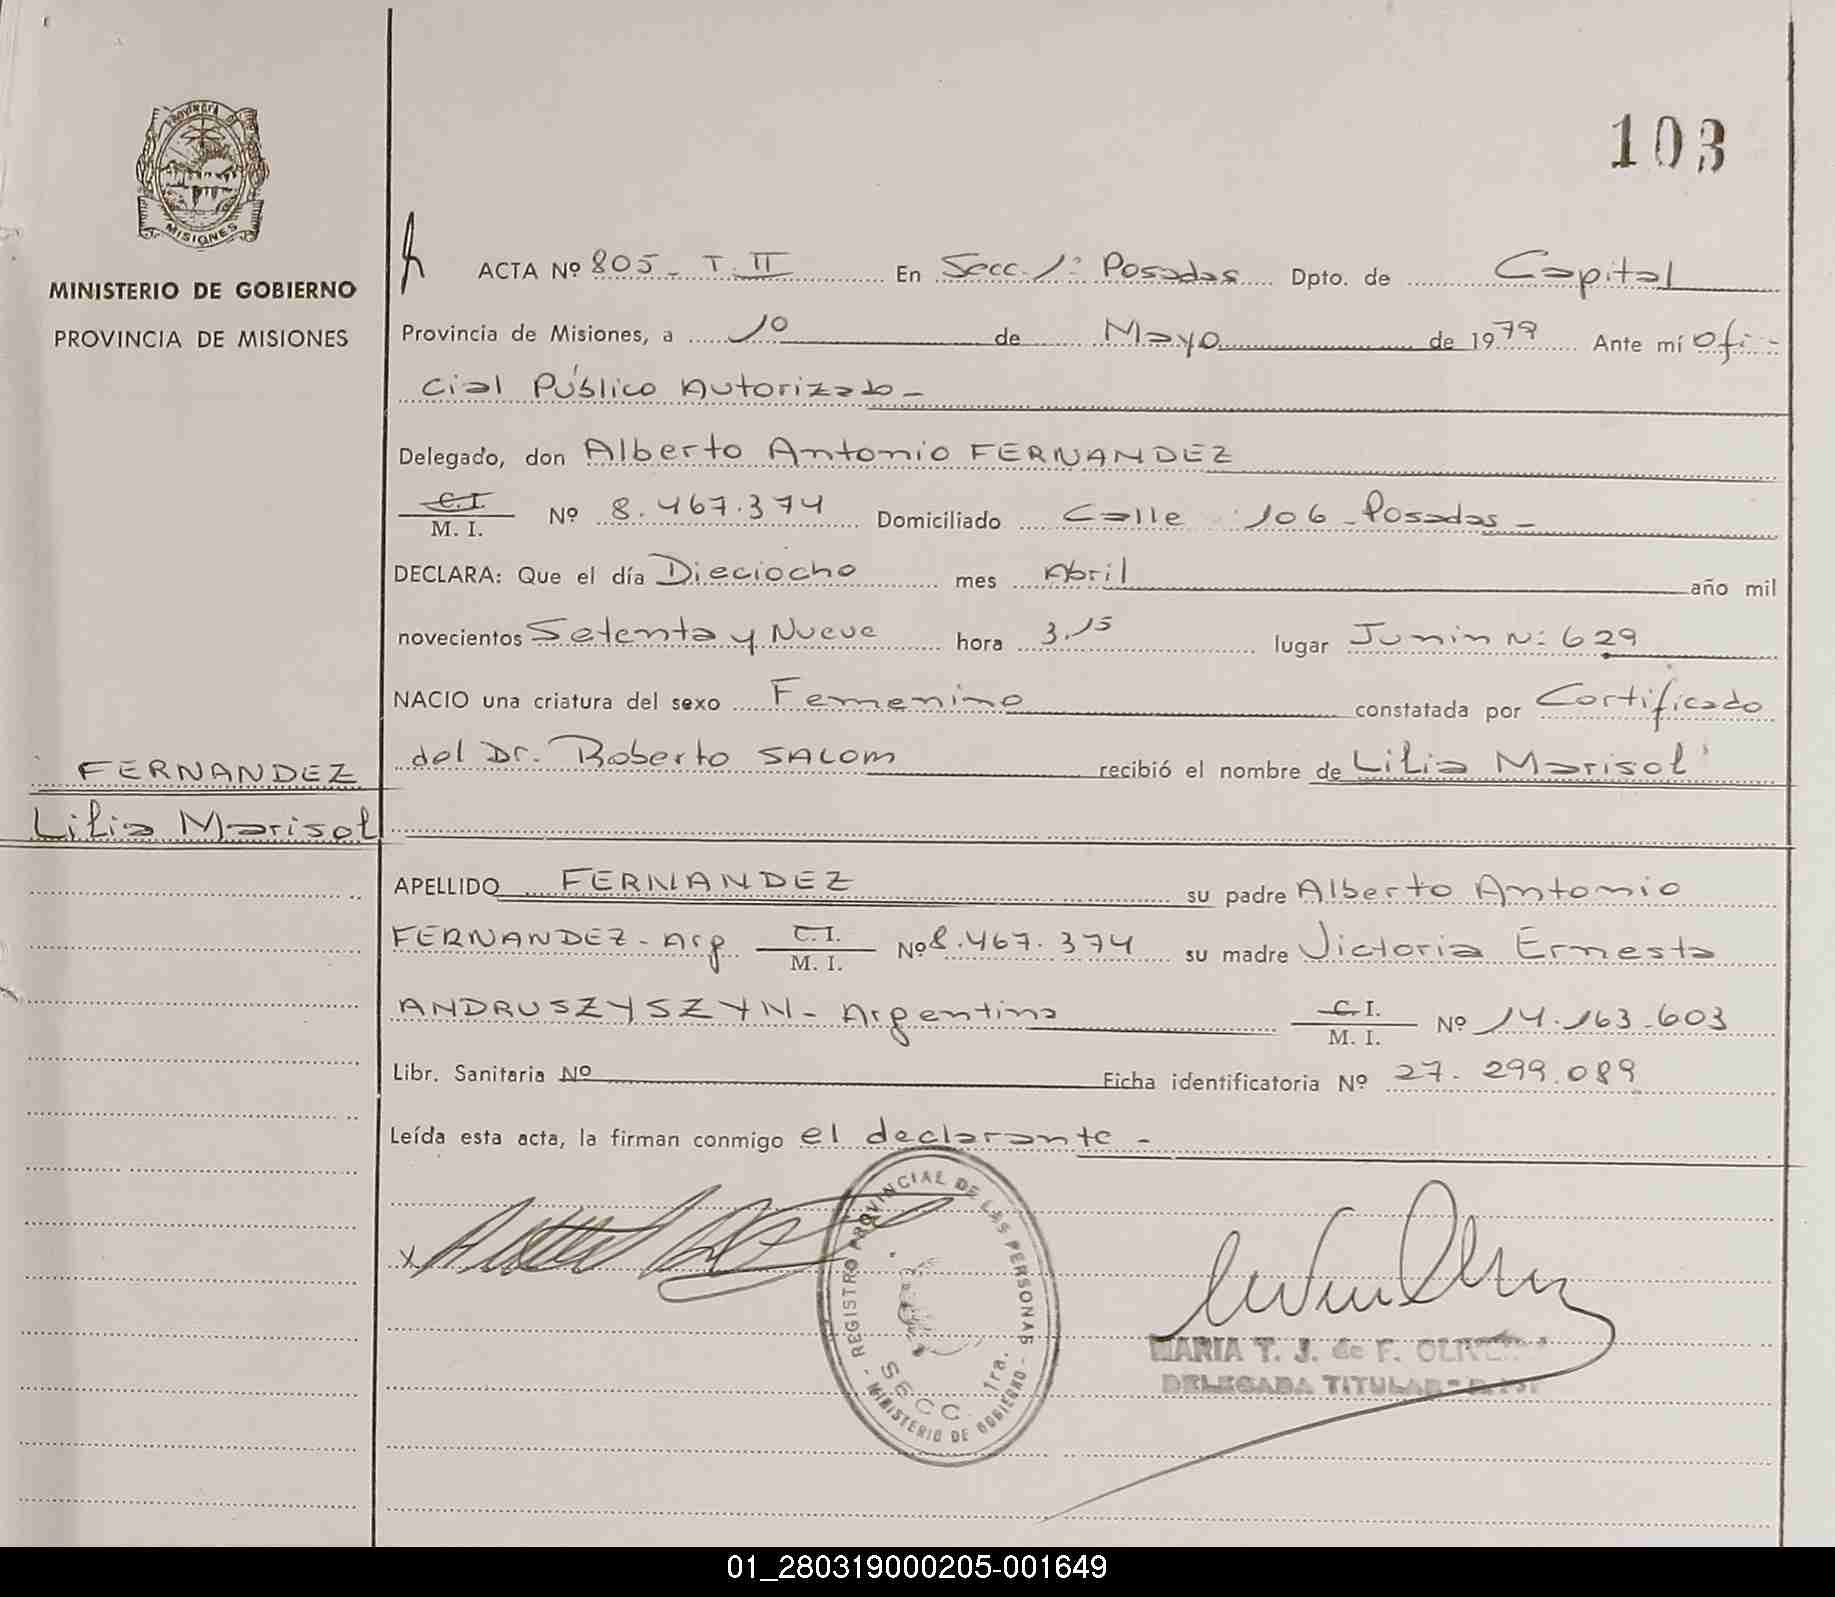 103
PROVINCIA D
MISIONES
MINISTERIO DE GOBIERNO
PROVINCIA DE MISIONES
ACTA Nº 805 - T. II En Secc. 1ª Posadas Dpto. de Capital
Provincia de Misiones, a 10 de Mayo de 1979 Ante mí Ofi-
cial Público Autorizado -
Delegado, don Alberto Antonio FERNANDEZ
C.I. / M. I. Nº 8.467.374 Domiciliado Calle 106 - Posadas -
DECLARA: Que el día Dieciocho mes Abril año mil
novecientos Setenta y Nueve hora 3.15 lugar Junin Nº 629
NACIO una criatura del sexo Femenino constatada por Certificado
del Dr. Roberto SALOM recibió el nombre de Lilia Marisol
FERNANDEZ
Lilia Marisol
APELLIDO FERNANDEZ su padre Alberto Antonio
FERNANDEZ - Arg. C.I. / M. I. Nº 8.467.374 su madre Victoria Ernesta
ANDRUSZYSZYN - Argentina C.I. / M. I. Nº 14.163.603
Libr. Sanitaria Nº Ficha identificatoria Nº 27.299.089
Leída esta acta, la firman conmigo el declarante -
REGISTRO PROVINCIAL DE LAS PERSONAS
SECC. 1ra.
- MINISTERIO DE GOBIERNO -
MARIA T. J. de F.
DELEGADA TITULAR
01_280319000205-001649